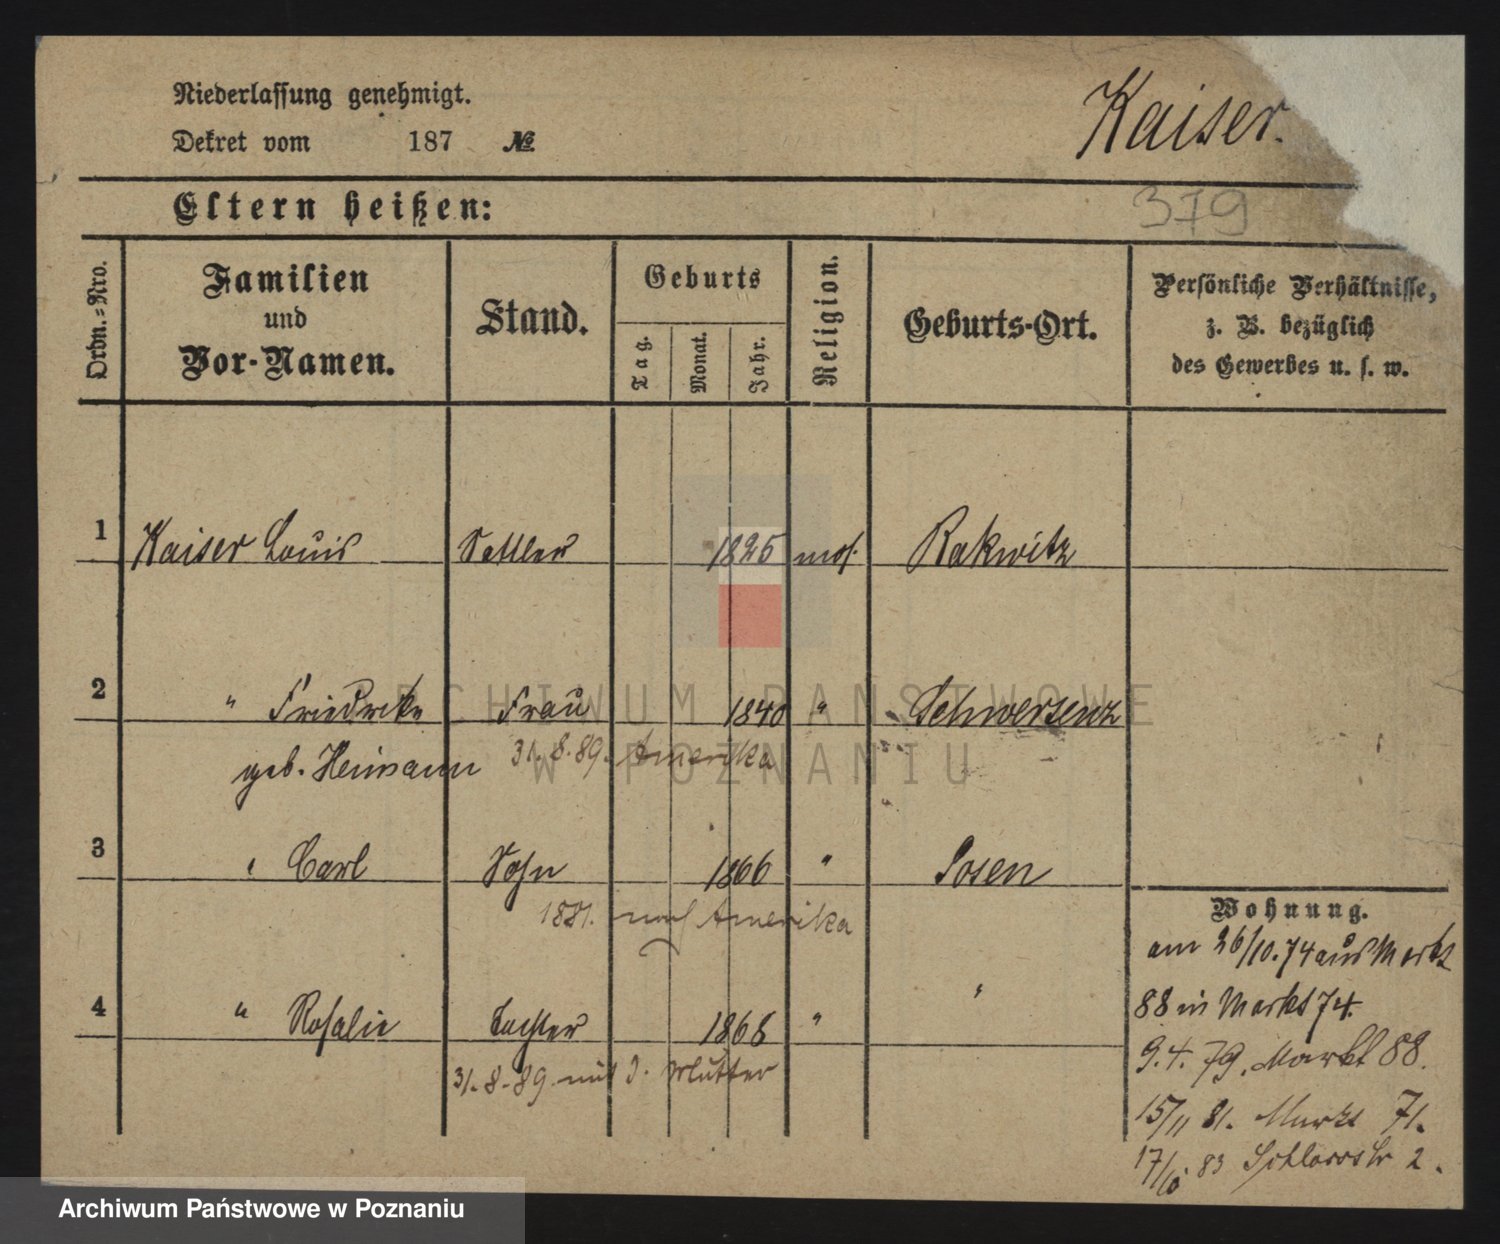 Niederlassung genehmigt.
Dekret vom 187 №
Kaiser.
379
Eltern heißen:
Ordn.-Nro.
Familien und Vor-Namen.
Stand.
Geburts
Tag.
Monat.
Jahr.
Religion.
Geburts-Ort.
Persönliche Verhältnisse,
z. B. bezüglich
des Gewerbes u. s. w.
1 Kaiser Louis Sattler 1825 mos. Rakwitz
2 " Friedrike Frau 1840 " Schwersenz
geb. Heimann 31.8.89. Amerika
3 " Carl Sohn 1866 " Posen
1881. nach Amerika
4 " Rosalie Tochter 1868 " "
31.8.89 mit d. Mutter
Wohnung.
am 26/10.74 aus Markt
88 in Markt 74.
9.4.79. Markt 88.
15/11 81. Markt 71.
17/10 83 Schlossstr 2.
ARCHIWUM PAŃSTWOWE
W POZNANIU
Archiwum Państwowe w Poznaniu